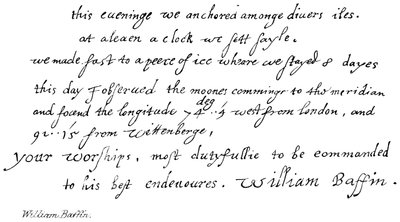 this eueninge we anchored amonge diuers iles.
at aleaen a clock we sett sayle.
we made fast to a peece of ice wheare we stayed 8 dayes
this day I obserued the moones comminge to the meridian
and found the longitude 74 deg..5 west from london, and
92..15 from Wittenberge,
your worships, most dutyfullie to be commanded
to his best endeuoures. William Baffin.
William Baffin.